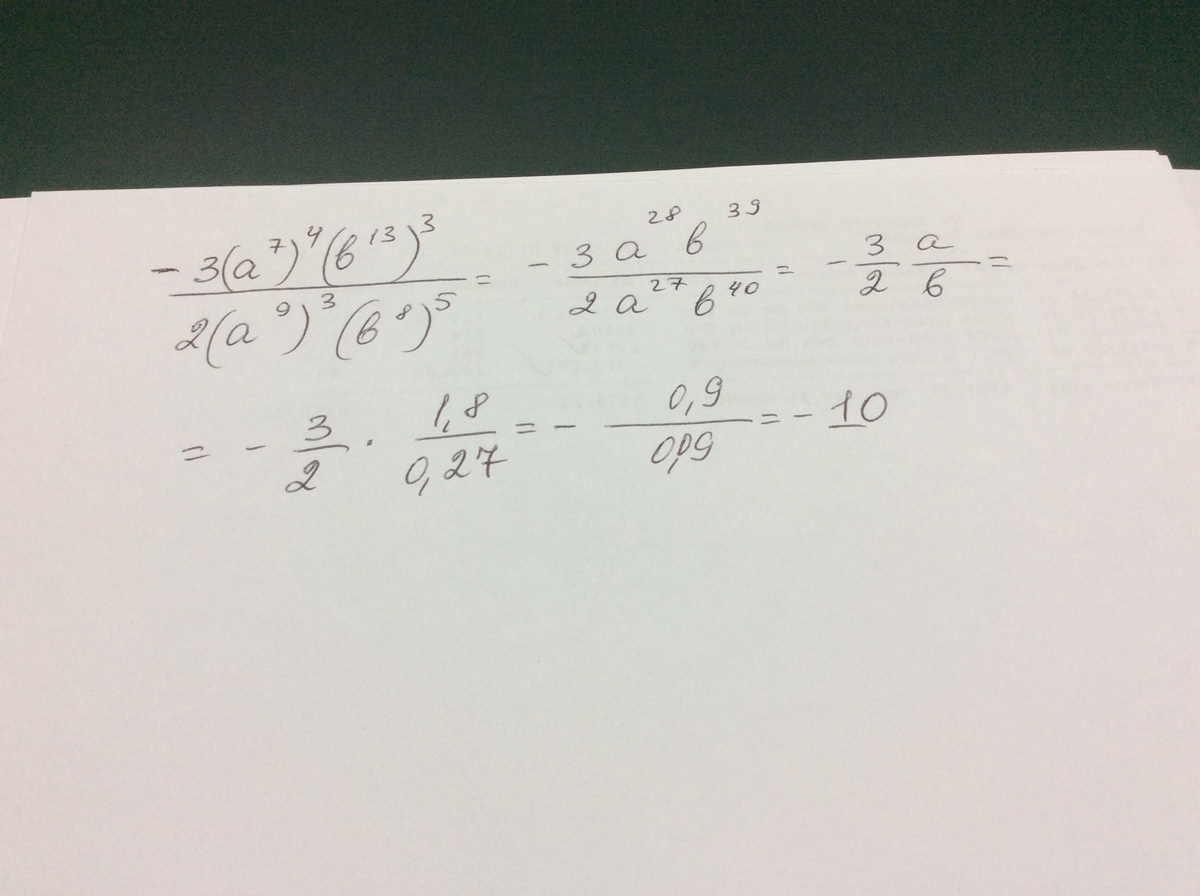 -3(a⁷)⁴(в¹³)³ / 2(a⁹)³(в⁸)⁵ = - 3a²⁸в³⁹ / 2a²⁷в⁴⁰ = - 3/2 a/в =
= - 3/2 · 1,8/0,27 = - 0,9/0,09 = - 10